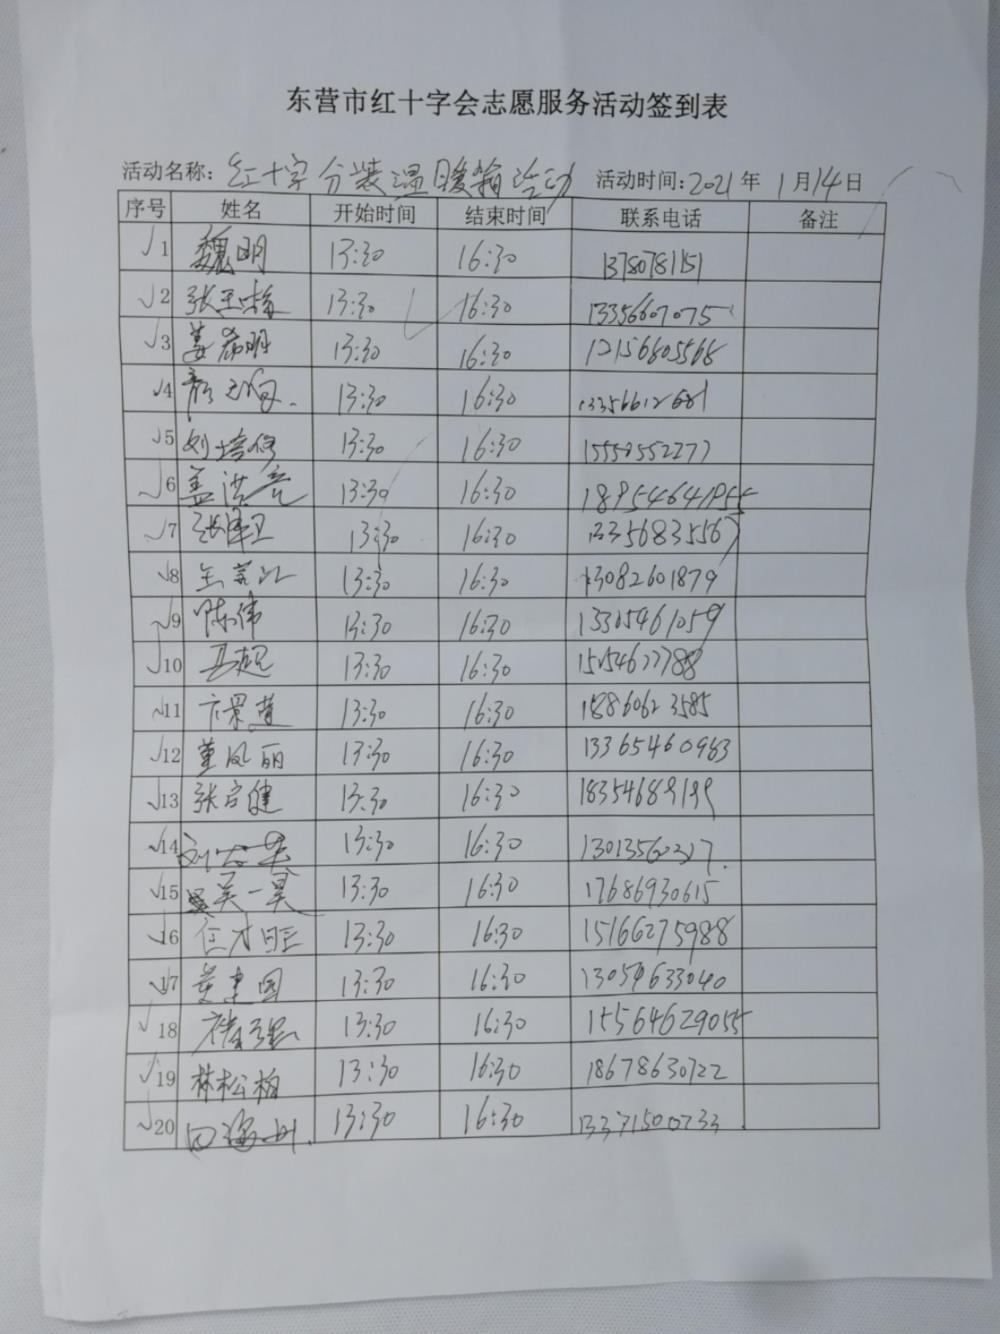 东营市红十字会志愿服务活动签到表
活动名称：红十字分装温暖箱活动 活动时间：2021年 1月14日
序号 姓名 开始时间 结束时间 联系电话 备注
√1 魏明 13:30 16:30 13780781151
√2 张玉 13:30 16:30 13356607075
√3 姜希明 13:30 16:30 12156805568
√4 13:30 16:30 13356612681
√5 刘培修 13:30 16:30 15550552277
√6 盖洪亮 13:30 16:30 18954641955
√7 张泽卫 13:30 16:30 13356835567
√8 13:30 16:30 13082601879
√9 陈伟 13:30 16:30 13305461059
√10 马超 13:30 16:30 15154677788
√11 景莲 13:30 16:30
√12 董凤丽 13:30 16:30 13365460983
√13 张启健 13:30 16:30 18354689199
√14 13:30 16:30 13013560217
√15 吴一昊 13:30 16:30 17686930615
√16 任才旺 13:30 16:30 15166275988
√17 黄建国 13:30 16:30 13054633040
√18 13:30 16:30 15564629055
√19 林松柏 13:30 16:30 18678630722
√20 13:30 16:30 13371500733